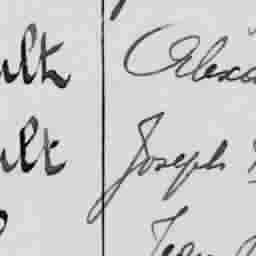 ult Alexa
ult Joseph
Jean